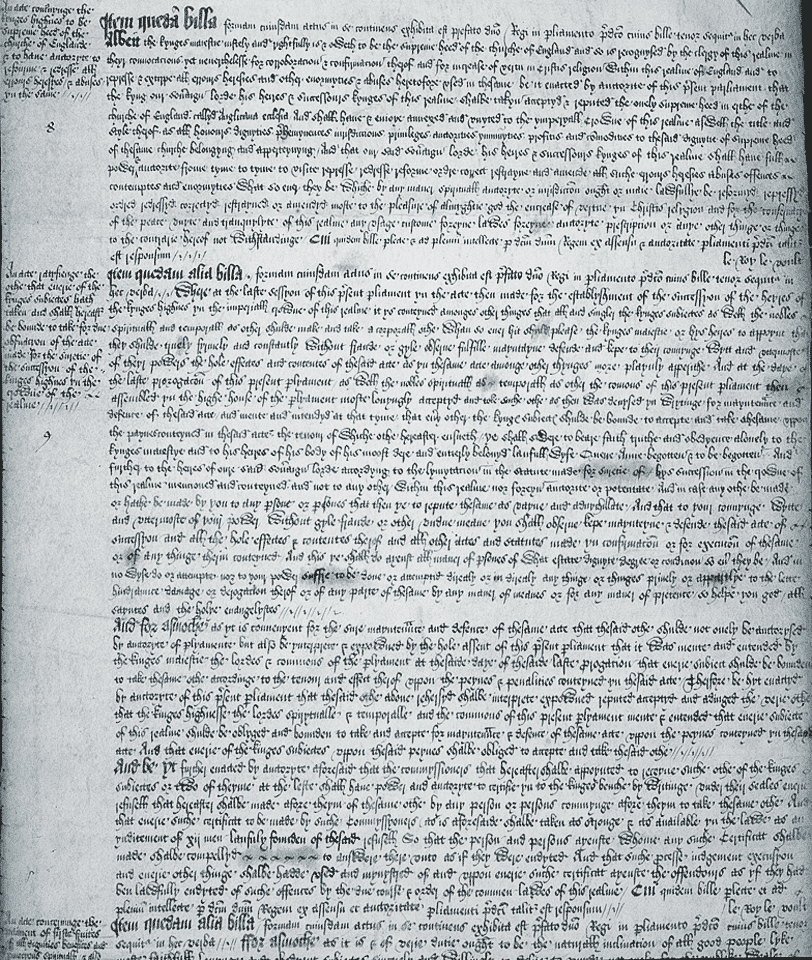 An acte concernynge the
kynges highnes to be
supreme heed of the
churche of Englande
& to have auctoryte to
refourme & redresse all
errours heresyes & abuses
yn the same
8
Item quedam billa formam cuiusdam actus in se continens exhibita est prefato domino Regi in parliamento predicto cuius bille tenor sequitur in hec verba
Albeit the kynges majestie justely and rightfully is & oweth to be the supreme heed of the churche of England and so is recognysed by the clergy of this realme in
theyr convocations yet neverthelesse for corroboracion & confirmacion therof and for increase of vertu in Cristis religion within this realme of England and to
represse & extirpe all errours heresies and other enormyties & abuses heretofore used in thesame be it enacted by auctorite of this present parliament that
the kyng our soveraign lorde his heires & successours kynges of this realme shalbe taken accepted & reputed the onely supreme heed in erthe of the
churche of England callyd Anglicana ecclesia And shall have & enjoye annexed and unyted to the ymperyall crowne of this realme aswell the title and
style therof as all honours dignyties prehemynences jurisdictions privileges auctorities ymmunyties profitis and commodities to thesaid dignyte of supreme heed
of thesame churche belongyng and apperteynyng And that our said soveraign lorde his heires & successours kynges of this realme shall have full
power & auctorite from tyme to tyme to visite represse redresse reforme ordre correct restrayne and amende all such errours heresies abuses offences
contemptes and enormyties what so ever they be whiche by any maner spirituall auctoryte or jurisdiction ought or maie lawfully be reformyd repressyd
ordred redressyd correctyd restrayned or amendyd moste to the pleasure of almyghtie god the encrease of vertue yn Christis religion and for the conservacion
of the peace unyte and tranquylyte of this realme any usage custome foreyne lawes foreyne auctoryte prescription or anye other thinge or thinges
to the contrarie hereof not withstandinge Cui quidem bille
est responsum le Roy le veult
An acte
othe that everie of the
kynges subjectes hath
taken and shall hereafter
be bounde to take for due
observation of the acte
made for the suretie of
the succession of the
kynges highnes yn the
crowne of the
realme
9
Item quedam alia billa formam cuiusdam actus in se continens exhibita est prefato domino Regi in parliamento predicto cuius bille tenor sequitur in
hec verba Where at the laste session of this present parliament yn the acte then made for the establyshment of the succession of the heyres of
the kynges highnes yn the imperiall crowne of this realme it ys conteyned amonges other thinges that all and singler the kynges subjectes as well the nobles
spirituall and temporall as other shulde make and take a corporall othe whan so ever hit shuld please the kynges majestie or hys heires to appoynt that
they shulde truely fyrmely and constantly without fraude or gyle observe fulfille mayntayne defende and kepe to their connynge wytt and uttermoste
of theyr powers the hole effectes and contentes of thesaid acte as yn thesame acte amonge other thynges more playnly apperith And at the daye of
the laste prorogacion of this present parliament as well the nobles spirituall & temporall as other the comons of this present parliament then
assembled yn the highe house of the parliament moste lovyngly accepted and toke suche othe as then was devysed yn writynge for mayntenaunce and
defence of thesaid acte and mente and intendyd at that tyme that every other the kynges subjectes shulde be bounde to accepte and take thesame uppon
the paynes conteyned in thesaid acte the tenour of whiche othe hereafter ensueth ye shall swere to beare faith truthe and obedyence alonely to the
kynges majestye and to his heires of his body of his most dere and entierly belovyd laufull wyfe Quene Anne begotten & to be begotten And
further to the heires of oure said soveraign lorde accordyng to the lymytation in the statute made for suretie of hys succession in the crowne of
this realme mencioned and conteyned and not to any other within this realme nor foreyn auctorite or potentate And in case any othe be made
or hathe be made by you to any persone or persones that then ye to repute thesame as vayne and adnychillate And that to your connynge wytte
and uttermoste of your power without gyle fraude or other undue meane you shall observe kepe mayntayne & defende thesaid acte of
succession and all the hole effectes & contentes therof and all other actes and statutes made yn confirmation or for execution of thesame
or of any thinge therin conteyned And this ye shall do ayenst all maner of persones of what estate dignyte degree or condition so ever they be And in
no wyse do or attempte nor to your power suffre to be done or attempted directly or in directly any thinge or thinges prively or appartlye to the lette
hindraunce damage or derogation therof or of any parte of thesame by any maner of meanes or for any maner of pretence so helpe you god all
sayntes and the holye evangelystes
And for asmoche as yt is convenyent for the sure mayntenaunce and defence of thesame acte that thesaid othe shulde not onely be auctorysed
by auctoryte of parlyamente but also be ynterprete & expowned by the hole assent of this present parliament that it was mente and entended by
the kinges majestie the lordes & commons of the parlyament at thesaide daye of thesaide laste prorogation that every subject shulde be bounde
to take thesame othe accordinge to the tenour and effect therof uppon the peynes & penalities conteyned yn thesaid acte Therfore be hyt enacted
by auctoryte of this present parliament that thesaid othe above rehersyd shalbe interprete expowned reputed accepted and adjuged the verie othe
that the kinges highnesse the lordes spirituelle & temporalle and the commons of this present parliament mente & entended that everie subjecte
of this realme shulde be oblyged and bounden to take and accepte for mayntenaunce & defence of thesame acte uppon the peynes conteyned yn thesaid
acte And that everie of the kinges subjectes uppon thesaid peynes shalbe obliged to accepte and take thesaid othe
And be yt further enacted by auctoryte aforesaid that the commyssioners that hereafter shalbe appoynted to receyve suche othe of the kinges
subjectes or two of theym at the leste shall have power and auctoryte to certifie yn to the kinges benche by writinge under their seales everie
refusell that hereafter shalbe made afore theym of thesame othe by any person or persons commynge afore theym to take thesame othe And
that everie suche certificat to be made by suche Commyssioners as is aforesaide shalbe taken as stronge & as available yn the lawe as an
enditement of xij men laufully founden of thesaid refusell So that the person and persons ayenste whome any suche Certificat shalbe
made shalbe compellyd to answere there unto as if they were endyted And that suche processe judgement execusyon
and everie other thinge shalbe hadde used and mynystred of and uppon everie suche certificat ayenste the offendours as yf they had
ben lawfully endyted of suche offences by the due course & order of the commen lawes of this realme Cui quidem bille plecte et ad
plenum intellecte per dictum dominum Regem ex assensu et auctoritate parliamenti predicti taliter est responsum le Roy le veult
An acte concernynge the
payment of firste fruites
Item quedam alia billa formam cuiusdam actus in se continens exhibita est prefato domino Regi in parliamento predicto cuius bille tenor
sequitur in hec verba ffor asmoche as it is & of verie dutie ought to be the naturall inclination of all good people lyke